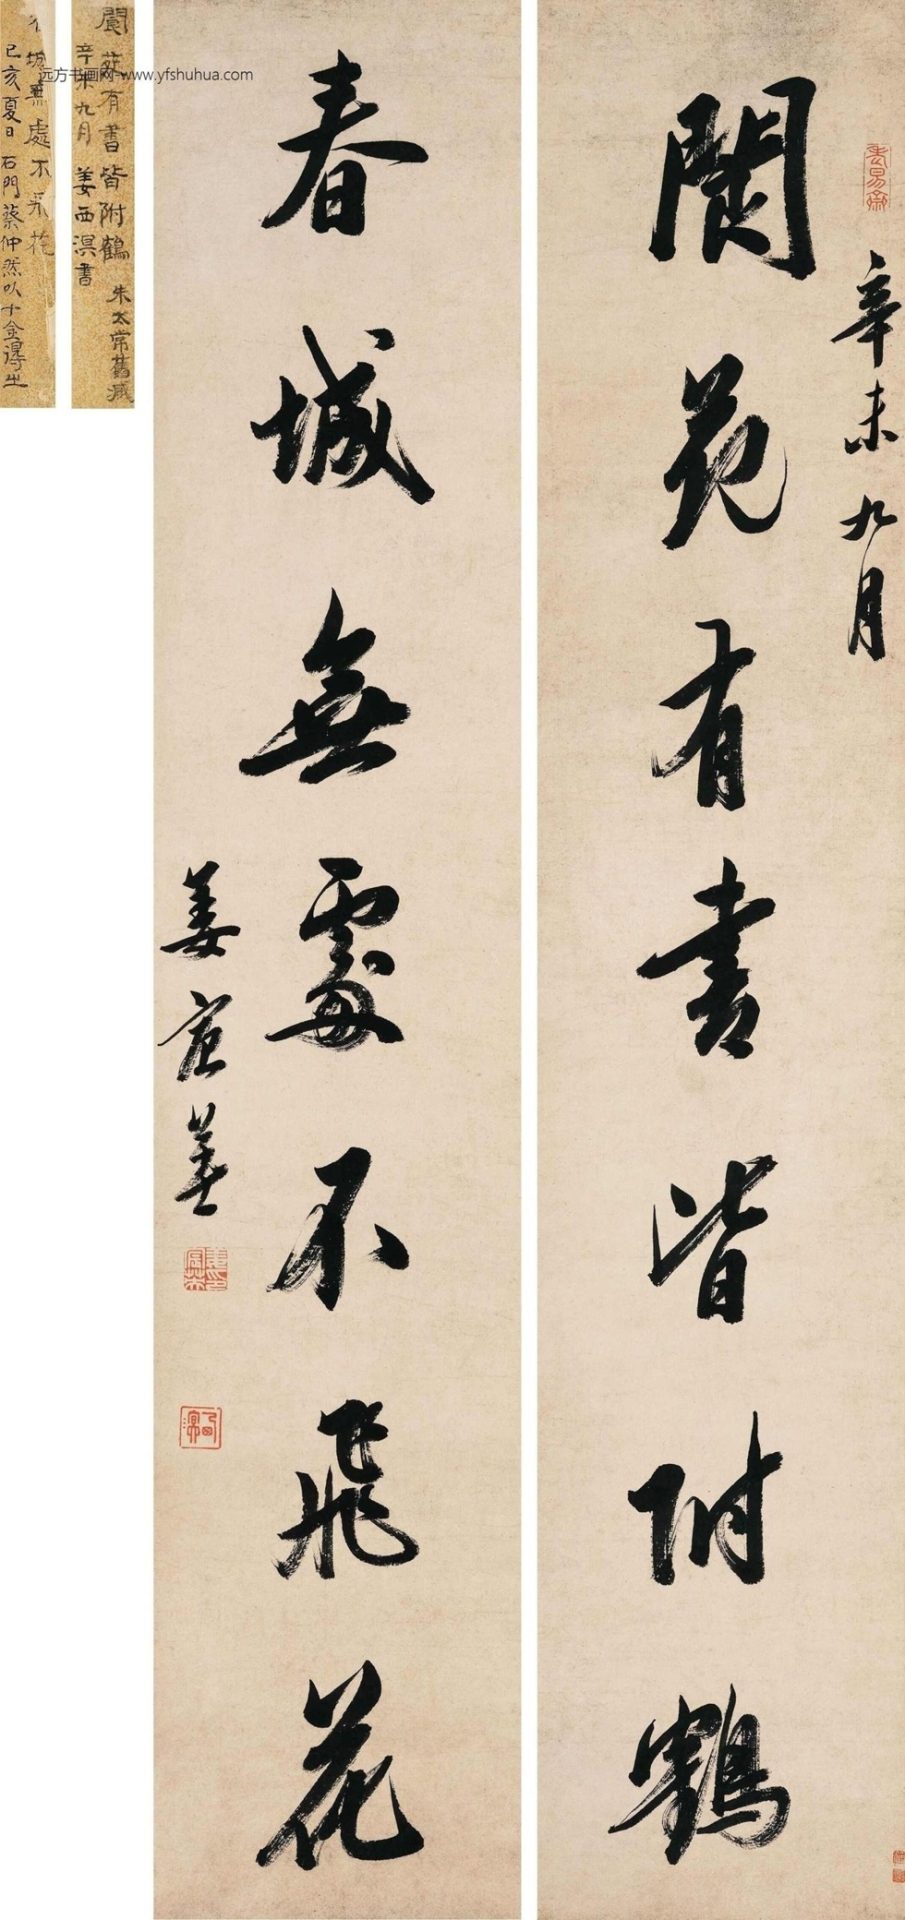 閬苑有書皆附鶴
辛未九月
春城無處不飛花
姜宸英
閬苑有書皆附鶴 朱太常舊藏
辛未九月 姜西溟書
城無處不飛花
己亥夏日 石門蔡仲然以十金得之
远方书画网-www.yfshuhua.com